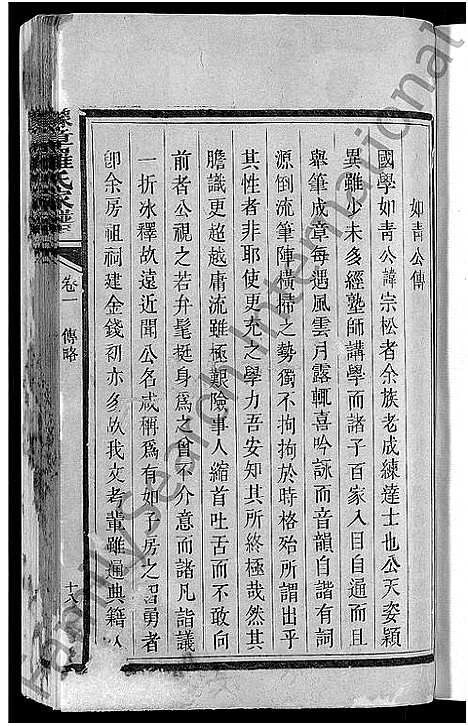 如青公傳
國學如青公諱宗松者余族老成練達士也公天姿穎
異雖少未多經塾師講學而諸子百家入目自通而且
舉筆成章每遇風雲月露輒喜吟詠而音韻自諧有詞
源倒流筆陣橫掃之勢獨不拘拘於時格殆所謂出乎
其性者非耶使更充之學力吾安知其所終極哉然其
膽識更超越庸流雖極艱險事人縮首吐舌而不敢向
前者公視之若弁髦挺身為之曾不介意而諸凡詣議
一折冰釋故遠近聞公名咸稱為有如子房之智勇者
卽余房祖祠建金錢刱亦多故我文考輩雖遍典籍
羅氏家譜
卷一
傳略
十八
FamilySearch International